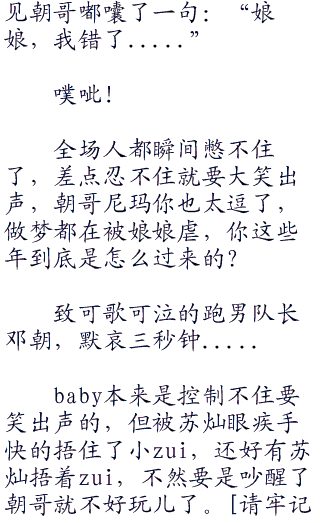 见朝哥嘟囔了一句：“娘
娘，我错了.....”
噗呲！
全场人都瞬间憋不住
了，差点忍不住就要大笑出
声，朝哥尼玛你也太逗了，
做梦都在被娘娘虐，你这些
年到底是怎么过来的？
致可歌可泣的跑男队长
邓朝，默哀三秒钟.....
baby本来是控制不住要
笑出声的，但被苏灿眼疾手
快的捂住了小zui，还好有苏
灿捂着zui，不然要是吵醒了
朝哥就不好玩儿了。[请牢记